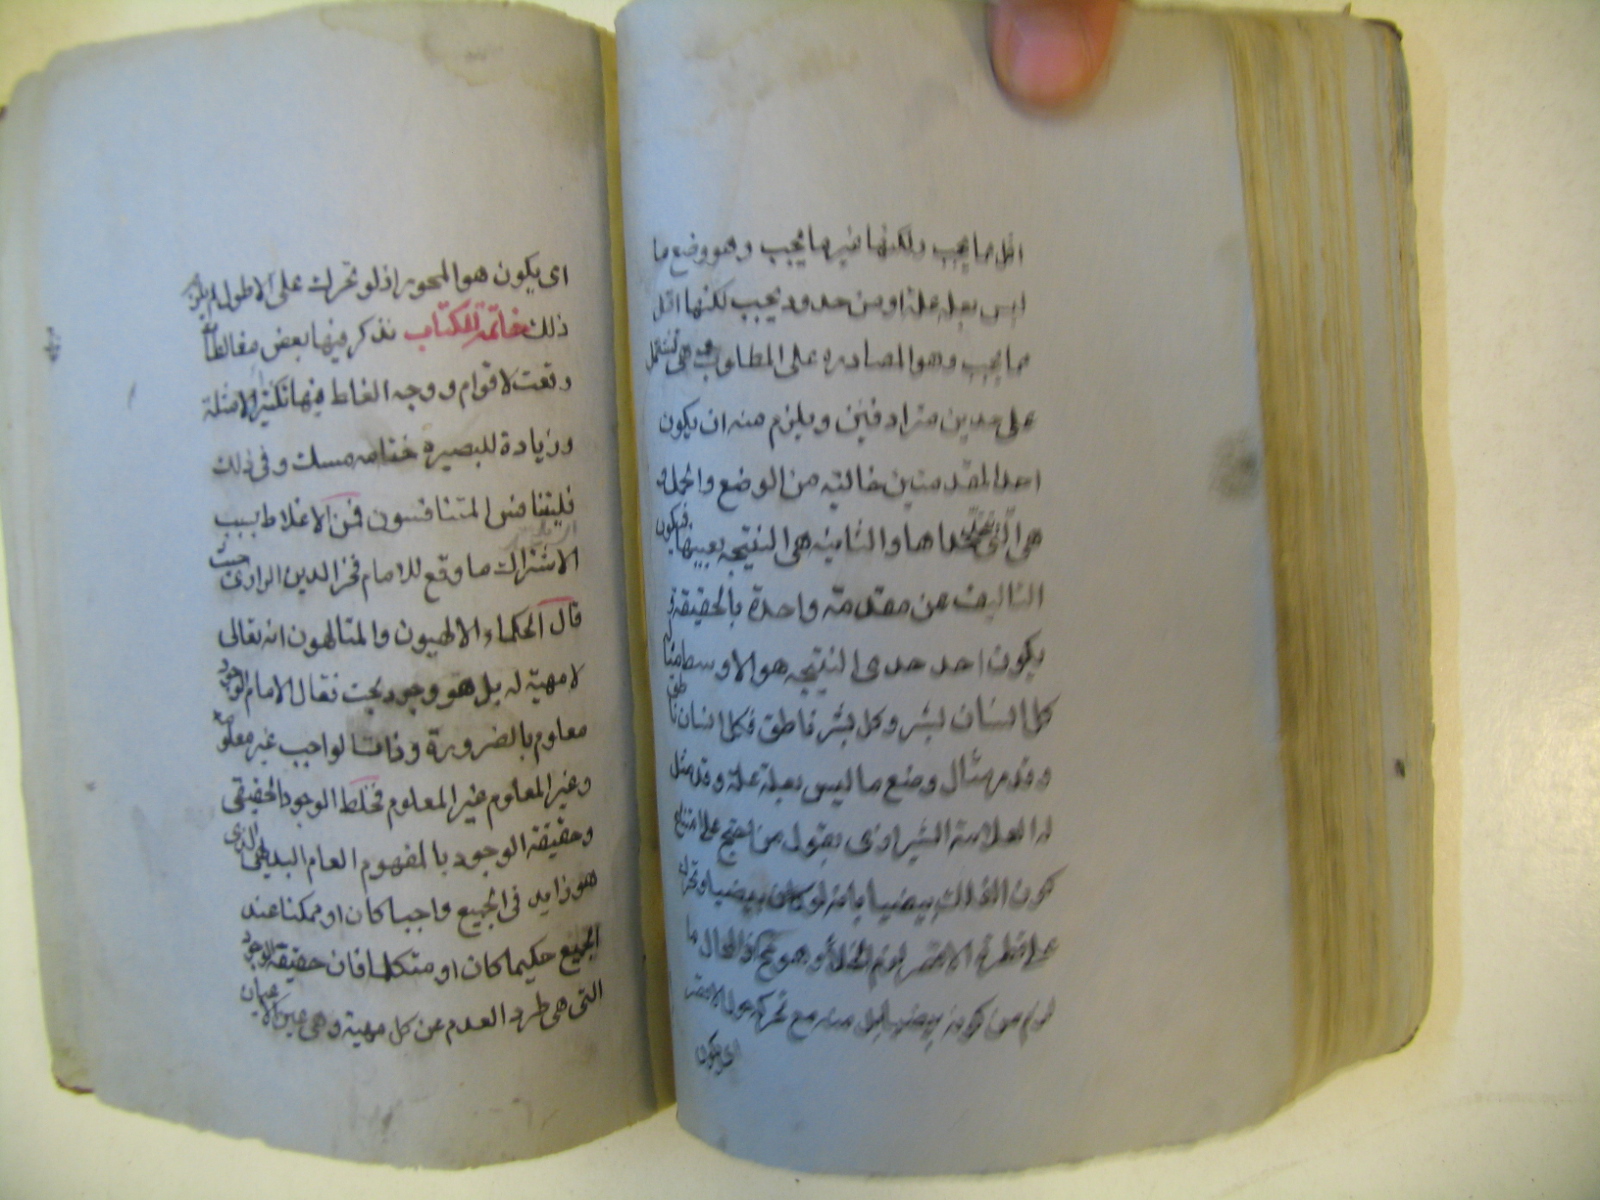 اقل مما يجب ولكنها غير ما يجب وهو وضع ما
ليس بعلة علة او من حدود يجب لكنها اقل
مما يجب وهو المصادره على المطلوب فهي تشتمل
على حدين مترادفين ويلزم منه ان يكون
احد المقدمتين خالتيه من الوضع والحمل
هي التي احداها والثانيه هي النتيجه بعينها فيكون
التاليف من مقدمة واحدة بالحقيقة و
يكون احد حدى النتيجه هو الاوسط مثاله
كل انسان بشر وكل بشر ناطق فكل انسان ناطق
وقد مر مثال وضع ما ليس بعلة علة وقد مثل
له العلامة الشيرازى بقول من احتج على امتناع
كون الفلك بيضيا بانه لو كان بيضيا وتحرك
على قطره الاقصر لزم الخلاء وهو مح فالمحال ما
لزم من كونه بيضيا بل منه مع تحركه حول الاقصر
اى يكون
اى يكون هو المحور اذ لو تحرك على الاطول لم يلزم
ذلك خاتمة للكتاب نذكر فيها بعض مغالطات
وقعت لاقوام ووجه الغلط فيها تكثيرا لامثلة
وزيادة للبصيره ختامه مسك وفى ذلك
فليتنافس المتنافسون فمن الاغلاط بسبب
الاشتراك ما وقع للامام فخر الدين الرازى حيث
قال الحكماء الالهيون والمتالهون انه تعالى
لا مهية له بل هو وجود بحت فقال الامام الوجود
معلوم بالضرورة وذات الواجب غير معلومة
وغير المعلوم غير المعلوم فخلط الوجود الحقيقى
وحقيقة الوجود بالمفهوم العام البديهى الذى
هو زايد فى الجميع واجبا كان او ممكنا عند
الجميع حكيما كان او متكلما فان حقيقة الوجود
التى هى طرد العدم عن كل مهية وهى عين الاعيان